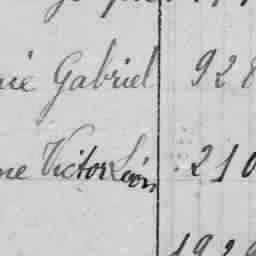 rie Gabriel 928
ne Victor Léon 210
1929